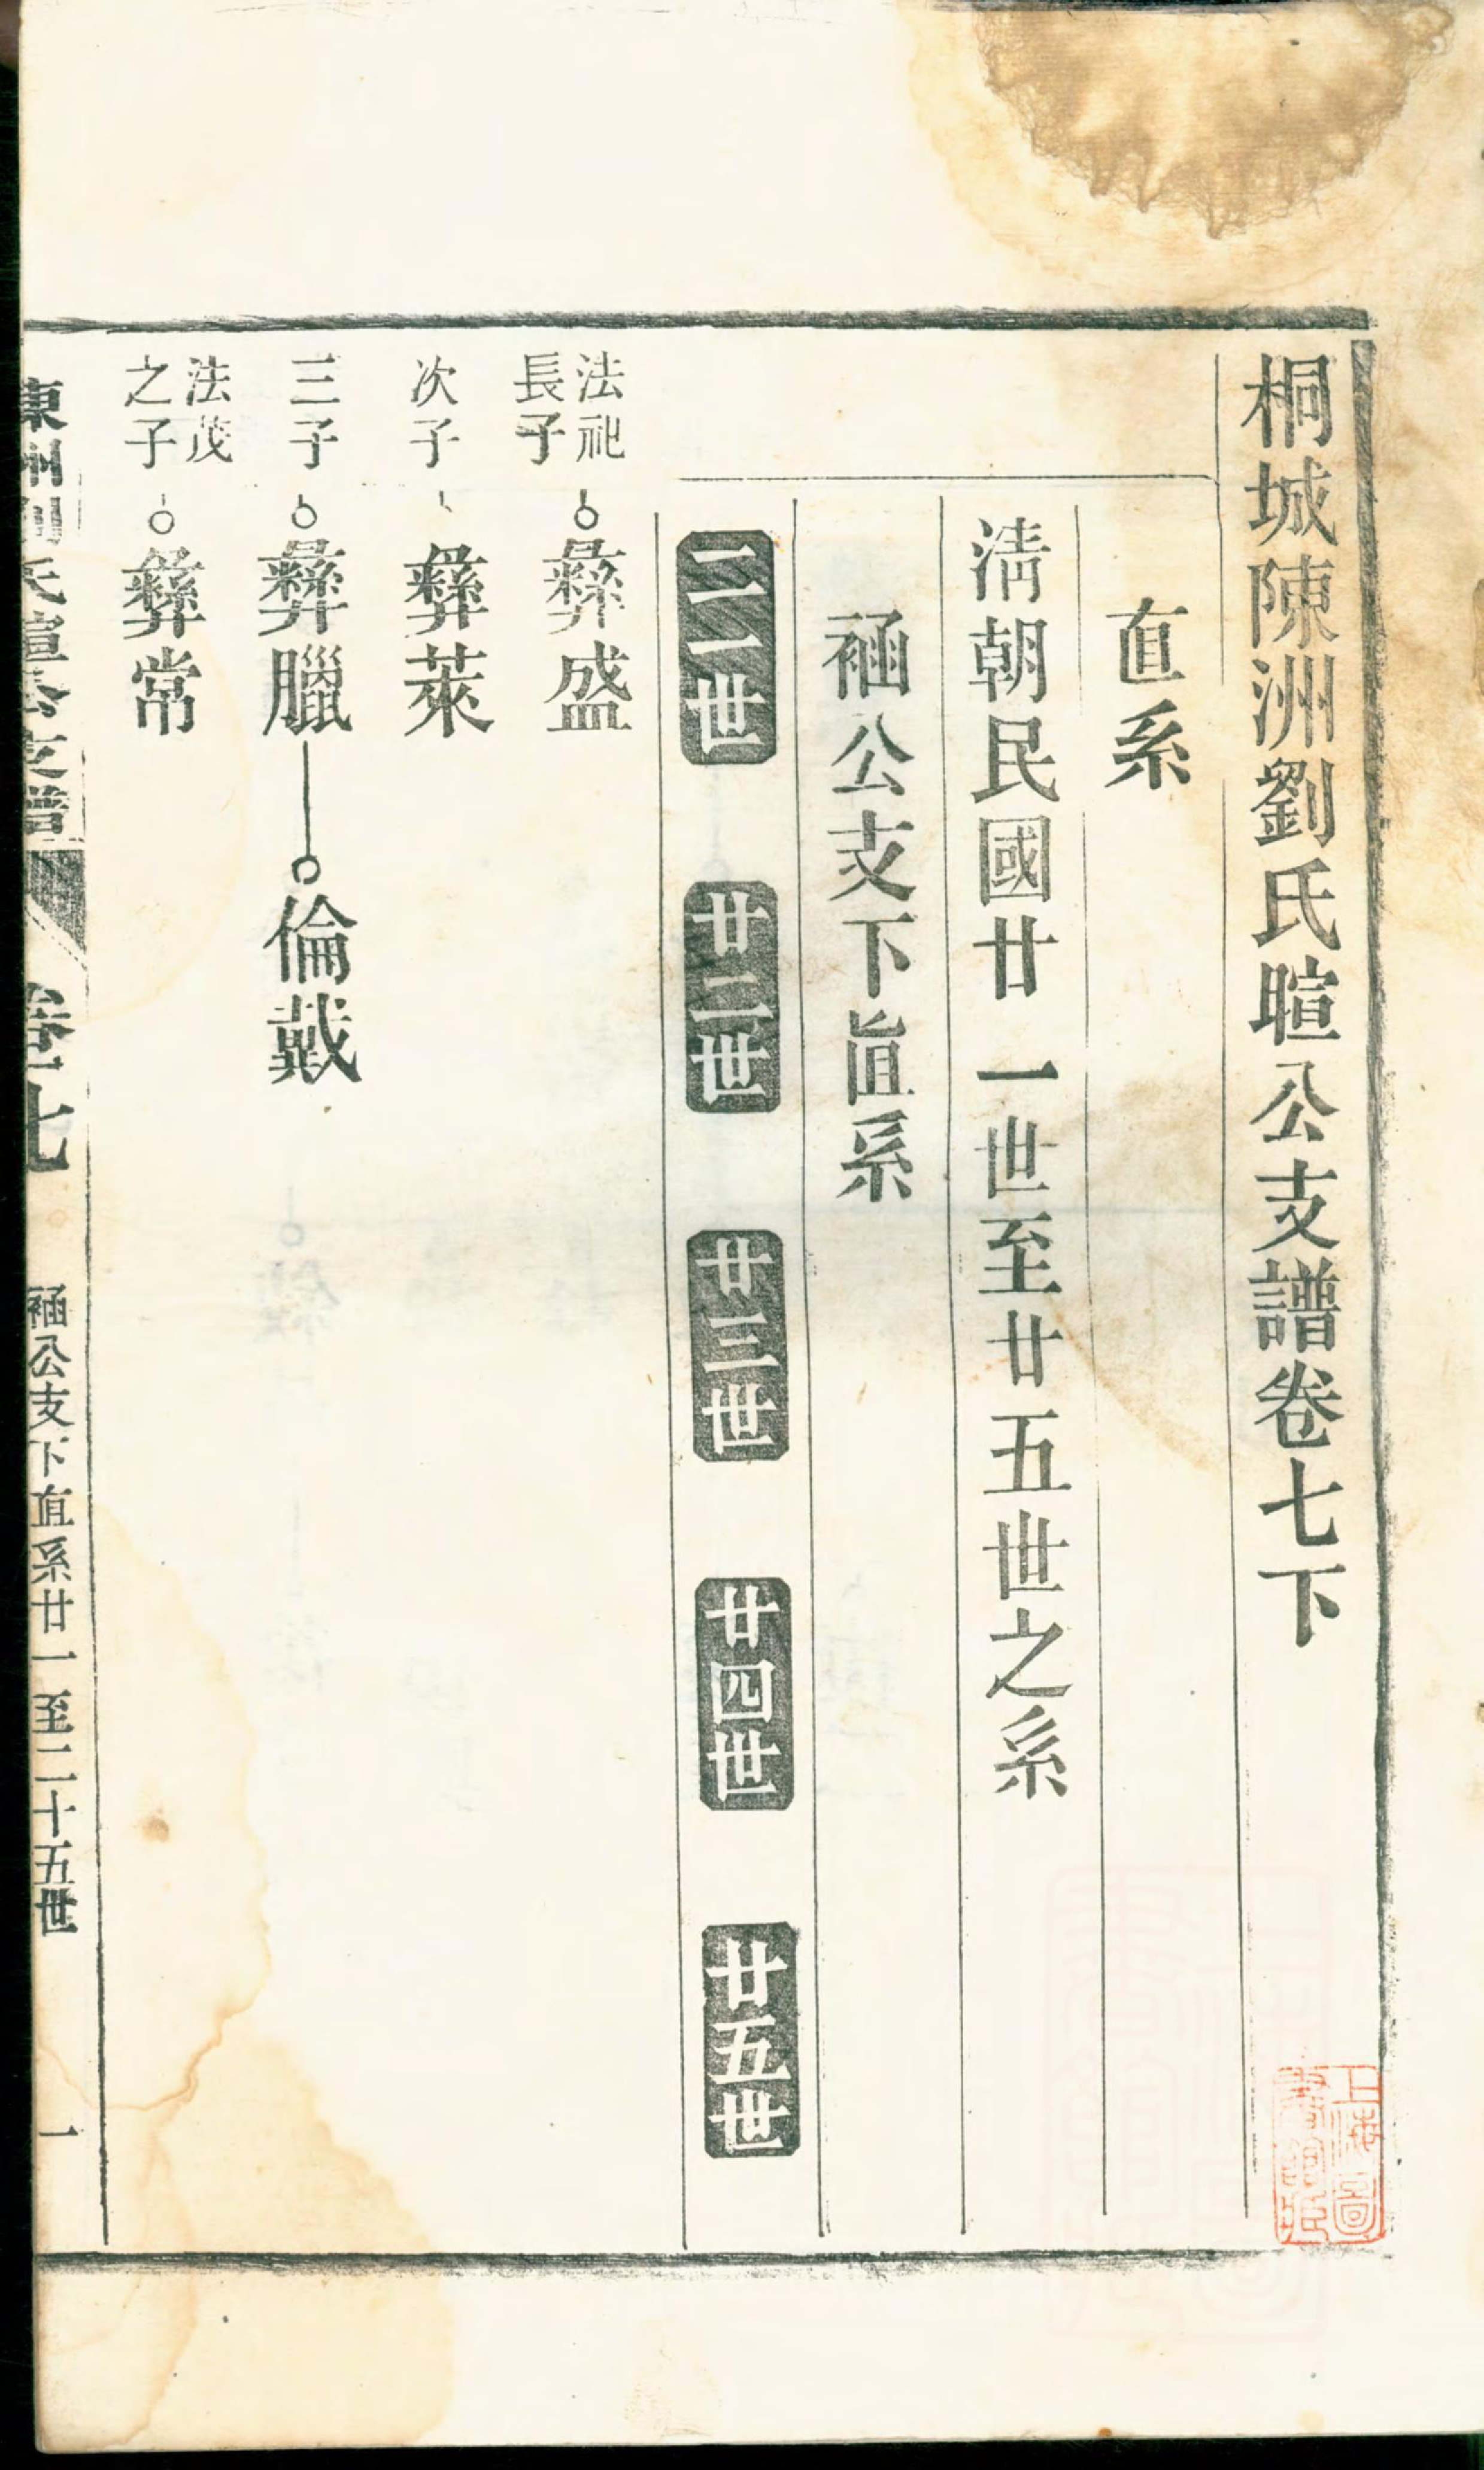 桐城陳洲劉氏暄公支譜卷七下
直系
清朝民國廿一世至廿五世之系
䄂公支下直系
二一世 廿二世 廿三世 廿四世 廿五世
法祀長子 彝盛
次子 彝萊
三子 彝臘 倫戴
法茂之子 彝常
陳洲劉氏暄公支譜 卷七 䄂公支下直系廿一至二十五世 一
上海圖書館藏